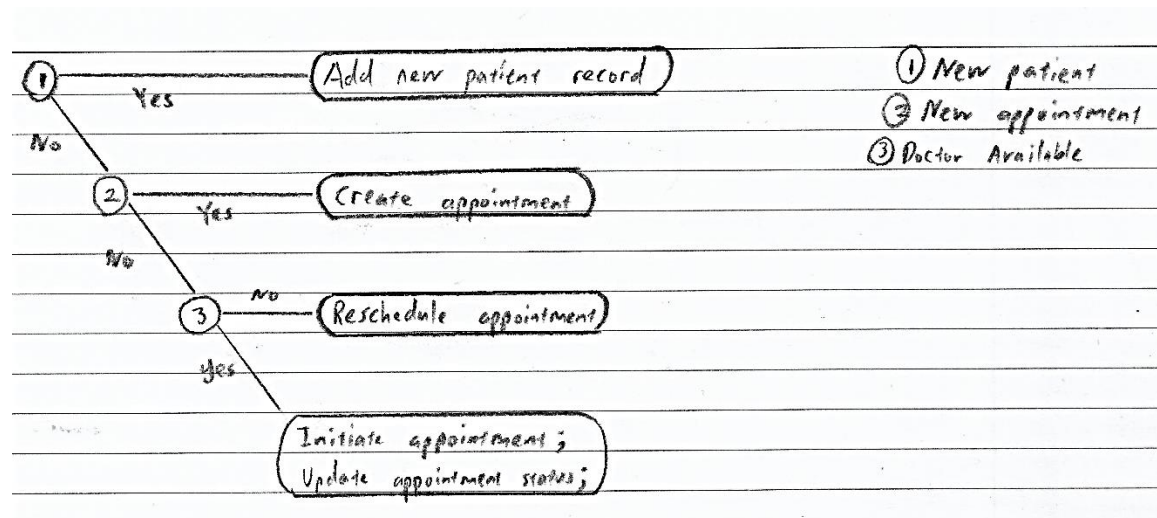 1 Yes Add new patient record
① New patient
② New appointment
③ Doctor Available
No
2 Yes Create appointment
No
3 No Reschedule appointment
yes
Initiate appointment;
Update appointment status;